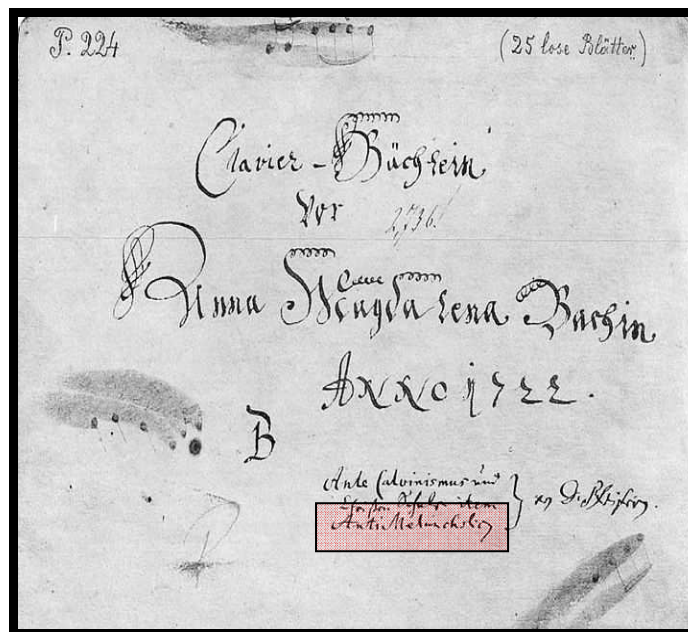 P. 224 (25 lose Blätter)
Clavier-Büchlein
vor
2,736.
Anna Magdalena Bachin
ANNO 1722.
B
Ante Calvinismus und
Christen Schule item } von D. Pfeifern.
AntiMelancholicus